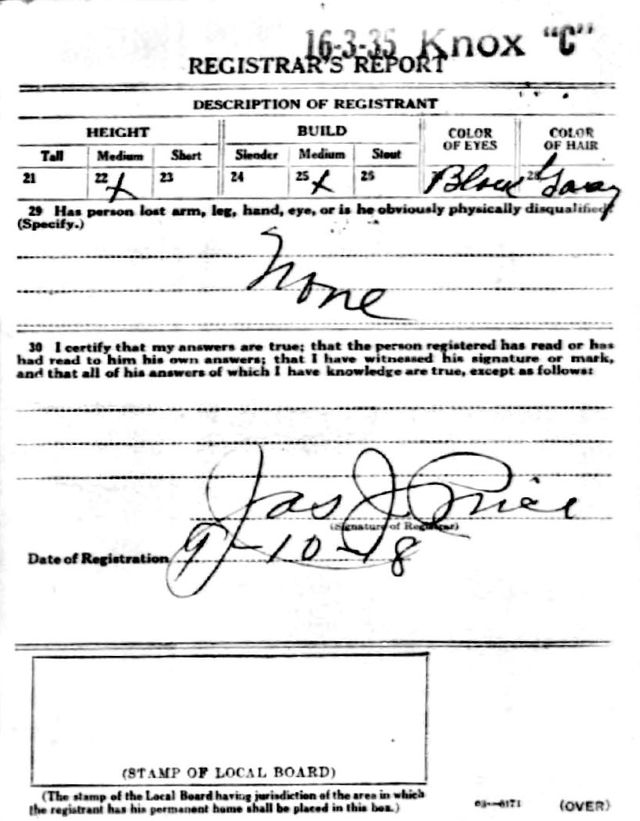 16-3-35 Knox "C"
REGISTRAR'S REPORT
DESCRIPTION OF REGISTRANT
HEIGHT BUILD COLOR OF EYES COLOR OF HAIR
Tall Medium Short Slender Medium Stout
21 22 x 23 24 25 x 26 28 Gray
29 Has person lost arm, leg, hand, eye, or is he obviously physically disqualified?
(Specify.)
None
30 I certify that my answers are true; that the person registered has read or has
had read to him his own answers; that I have witnessed his signature or mark,
and that all of his answers of which I have knowledge are true, except as follows:
Jas J Price
(Signature of Registrar)
Date of Registration 9-10-18
(STAMP OF LOCAL BOARD)
(The stamp of the Local Board having jurisdiction of the area in which
the registrant has his permanent home shall be placed in this box.)
03-6171 (OVER)